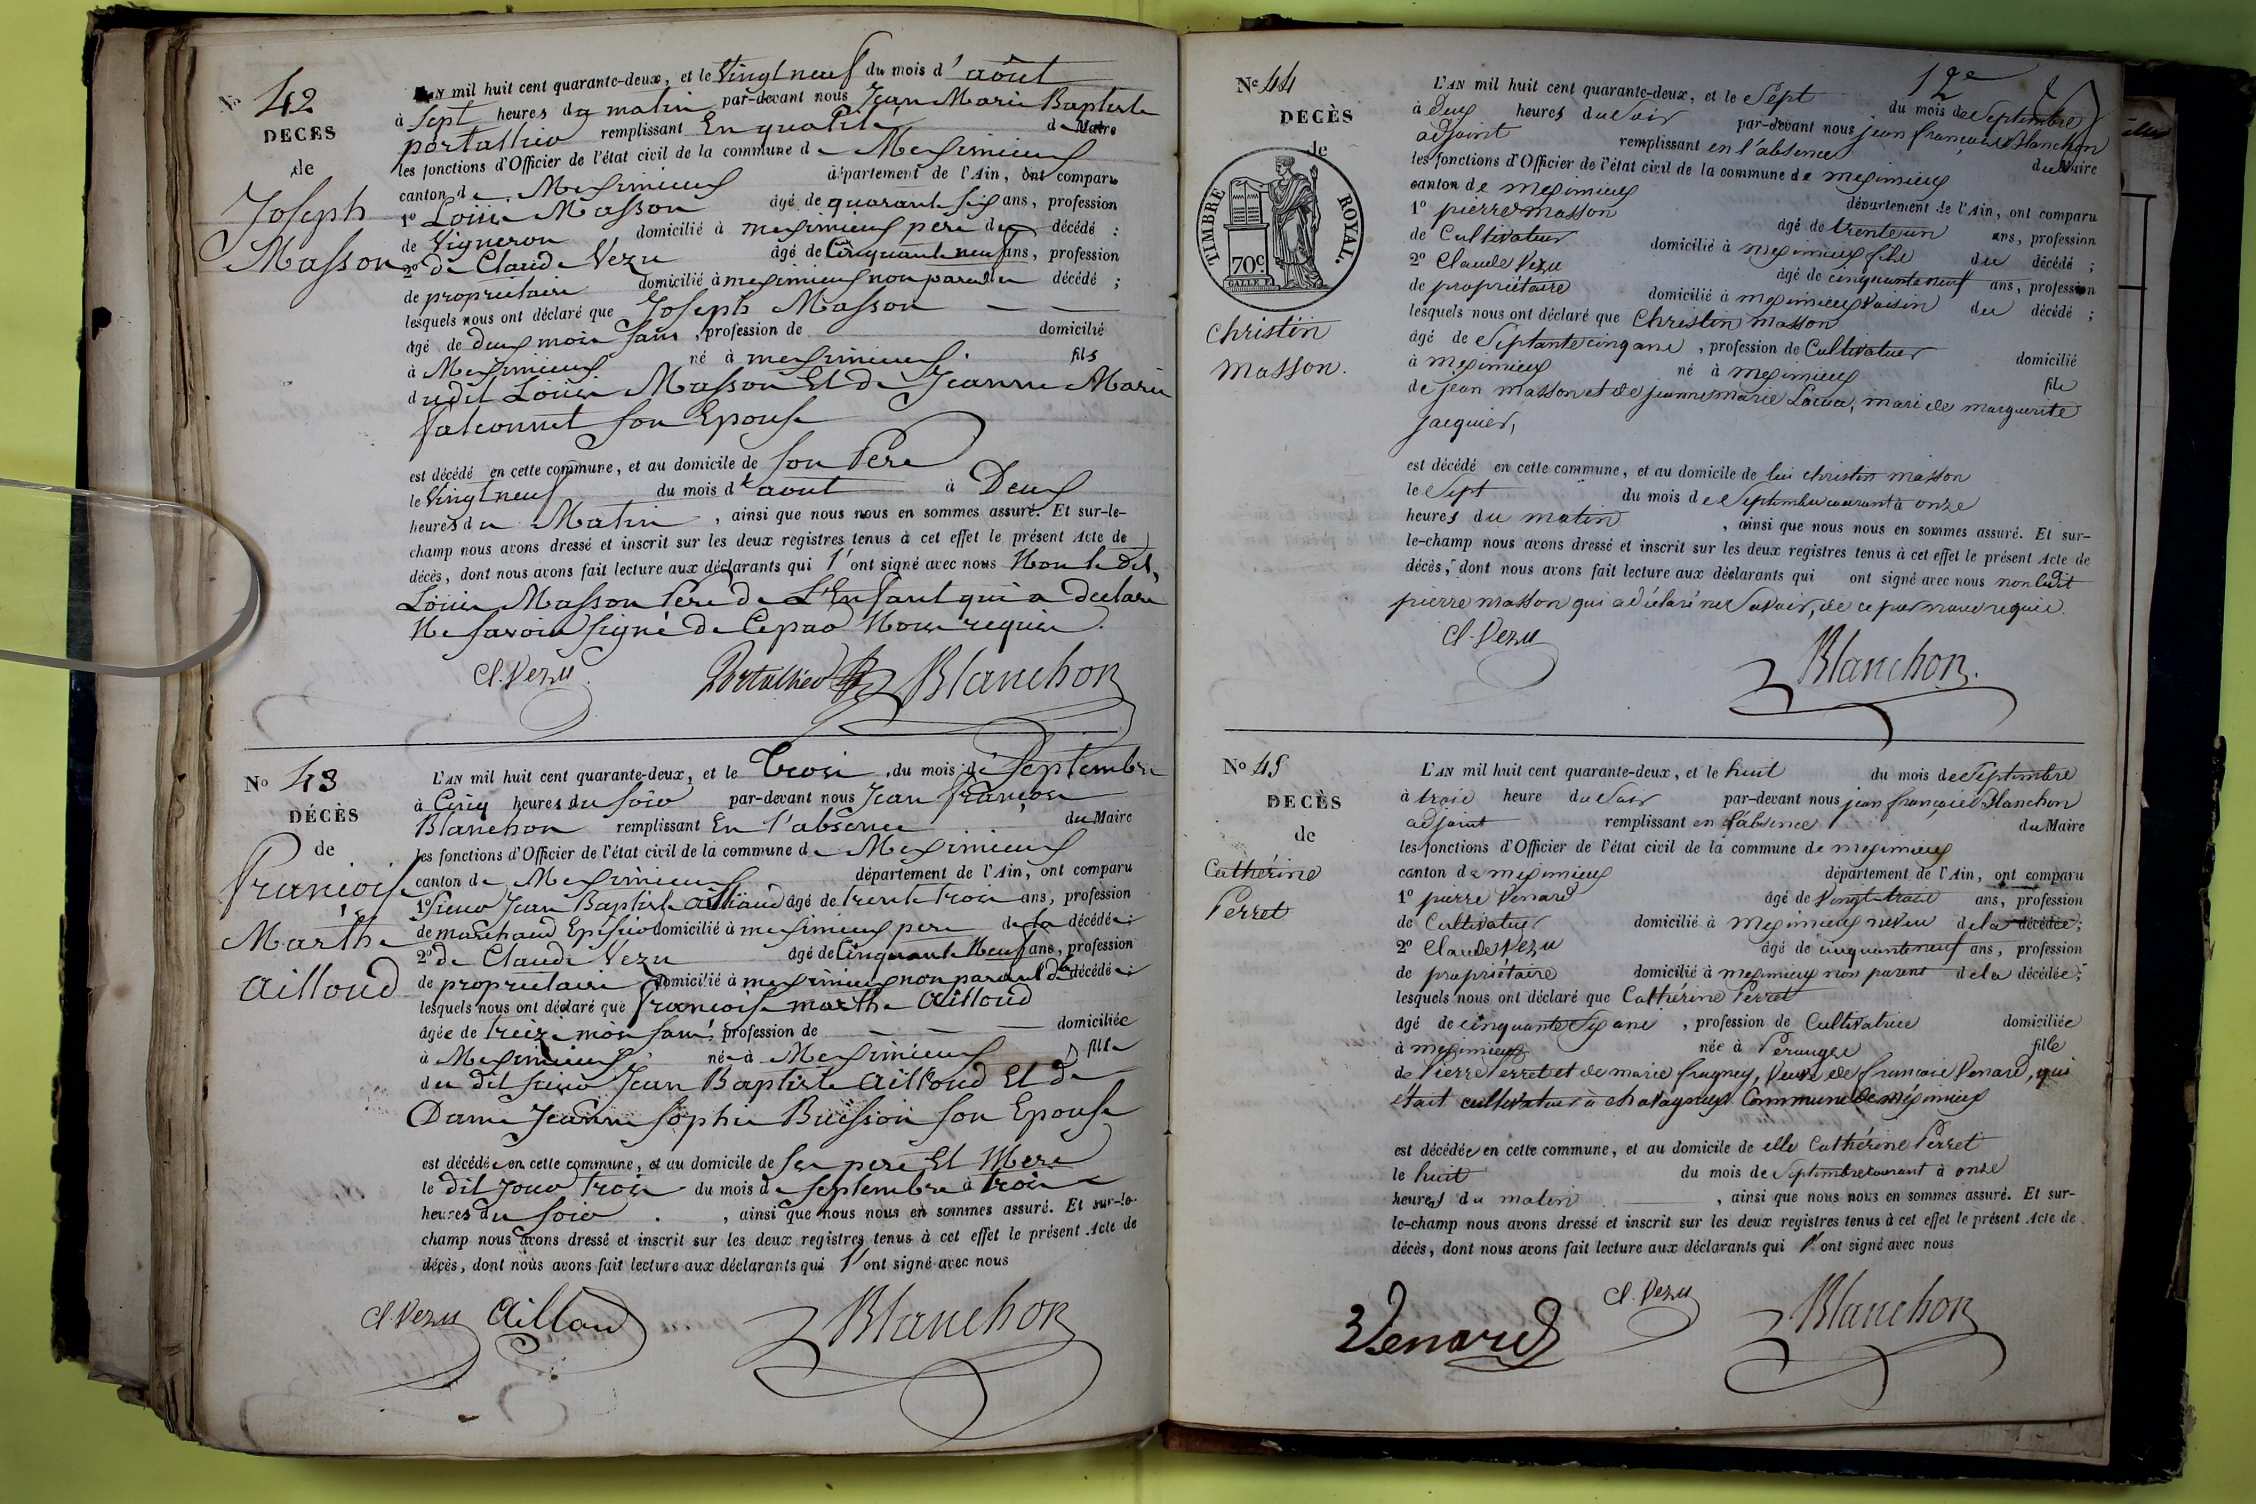 No 42
DECES
de
Joseph
Masson
L'AN mil huit cent quarante-deux, et le Vingt neuf du mois d'août
à Sept heures du matin par-devant nous Jean Marie Baptiste
portallier remplissant En qualité de Maire
les fonctions d'Officier de l'état civil de la commune de Meximieux
canton de Meximieux département de l'Ain, ont comparu
1º Louis Masson âgé de quarante six ans, profession
de Vigneron domicilié à meximieux pere du décédé ;
2º de Claude Vezu âgé de Cinquante neuf ans, profession
de propriétaire domicilié à meximieux non parent du décédé ;
lesquels nous ont déclaré que Joseph Masson
âgé de deux mois sans , profession de domicilié
à Meximieux né à meximieux fils
dudit Louis Masson Et de Jeanne Marie
falconnet son Epouse
est décédé en cette commune, et au domicile de son Pere
le Vingt neuf du mois d'aout à Deux
heures du Matin , ainsi que nous nous en sommes assuré. Et sur-le-
champ nous avons dressé et inscrit sur les deux registres tenus à cet effet le présent Acte de
décès, dont nous avons fait lecture aux déclarants qui l'ont signé avec nous Non le dit
Louis Masson Pere de L'Enfant qui a declaré
Ne savoir signé de Ce pao Nous requis
Cl. Vezu Portallier Blanchon
No 43
DÉCÈS
de
françoise
Marthe
ailloud
L'AN mil huit cent quarante-deux, et le trois du mois de Septembre
à Cinq heures du soir par-devant nous Jean françois
Blanchon remplissant En l'absence du Maire
les fonctions d'Officier de l'état civil de la commune de Meximieux
canton de Meximieux département de l'Ain, ont comparu
1º sieur Jean Baptiste ailloud âgé de trente trois ans, profession
de marchand Epicier domicilié à meximieux pere de la décédée ;
2º de Claude Vezu âgé de Cinquante Neuf ans, profession
de propriétaire domicilié à meximieux non parent de la décédée ;
lesquels nous ont déclaré que françoise marthe ailloud
âgée de treize mois sans , profession de domiciliée
à Meximieux née à Meximieux fille
du dit sieur Jean Baptiste ailloud Et de
Dame Jeanne Sophie Buisson son Epouse
est décédée en cette commune, et au domicile de ses pere Et Mere
le dit jour trois du mois de septembre à trois
heures du soir , ainsi que nous nous en sommes assuré. Et sur-le-
champ nous avons dressé et inscrit sur les deux registres tenus à cet effet le présent Acte de
décès, dont nous avons fait lecture aux déclarants qui l'ont signé avec nous
Cl. Vezu Ailloud Blanchon
12e
No 44
DECÈS
de
TIMBRE ROYAL.
70c
christin
masson.
L'AN mil huit cent quarante-deux, et le Sept du mois de Septembre
à Deux heures du Soir par-devant nous jean françois Blanchon
adjoint remplissant en l'absence du Maire
les fonctions d'Officier de l'état civil de la commune de meximieux
canton de meximieux département de l'Ain, ont comparu
1º pierre masson âgé de trente un ans, profession
de Cultivateur domicilié à meximieux fils du décédé ;
2º Claude Vezu âgé de cinquante neuf ans, profession
de propriétaire domicilié à meximieux Voisin du décédé ;
lesquels nous ont déclaré que Christin masson
âgé de Septante cinq ans , profession de Cultivateur domicilié
à meximieux né à meximieux fils
de jean masson et de jeanne marie , mari de marguerite
jacquier,
est décédé en cette commune, et au domicile de lui christin masson
le Sept du mois de Septembre courant à onze
heures du matin , ainsi que nous nous en sommes assuré. Et sur-
le-champ nous avons dressé et inscrit sur les deux registres tenus à cet effet le présent Acte de
décès, dont nous avons fait lecture aux déclarants qui ont signé avec nous non ledit
pierre masson qui a déclaré ne Savoir, de ce par nous requis.
Cl. Vezu Blanchon.
No 45
DECÈS
de
Cathérine
Perret
L'AN mil huit cent quarante-deux, et le huit du mois de Septembre
à trois heure du Soir par-devant nous jean françois Blanchon
adjoint remplissant en l'absence du Maire
les fonctions d'Officier de l'état civil de la commune de meximieux
canton de meximieux département de l'Ain, ont comparu
1º pierre Venard âgé de Vingt trois ans, profession
de Cultivateur domicilié à Meximieux neveu de la décédée ;
2º Claude Vezu âgé de cinquante neuf ans, profession
de propriétaire domicilié à meximieux non parent de la décédée ;
lesquels nous ont déclaré que Cathérine Perret
âgé de cinquante Six ans , profession de Cultivatrice domiciliée
à meximieux née à Perouges fille
de Pierre Perret et de marie , Veuve de francois Venard, qui
était cultivateur à chavagneux Commune de méximieux
est décédée en cette commune, et au domicile de elle Cathérine Perret
le huit du mois de Septembre courant à onze
heures du matin , ainsi que nous nous en sommes assuré. Et sur-
le-champ nous avons dressé et inscrit sur les deux registres tenus à cet effet le présent Acte de
décès, dont nous avons fait lecture aux déclarants qui l'ont signé avec nous
Venard Cl. Vezu Blanchon